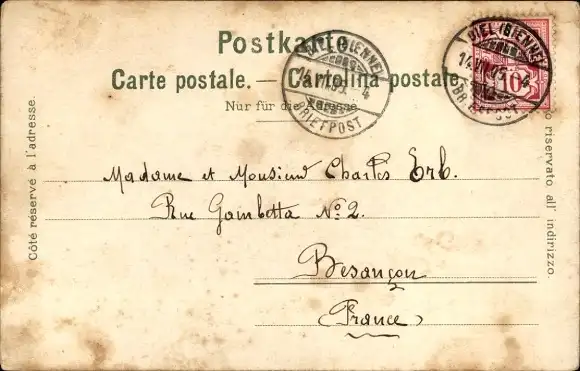 Postkarte.
Carte postale. — Cartolina postale.
Nur für die Adresse
Côté réservé à l'adresse.
riservato all' indirizzo.
BIEL (BIENNE)
BRIEFPOST
BIEL (BIENNE)
BRIEFPOST
10
Madame et Monsieur Charles Erb.
Rue Gambetta No 2.
Besançon
(France)